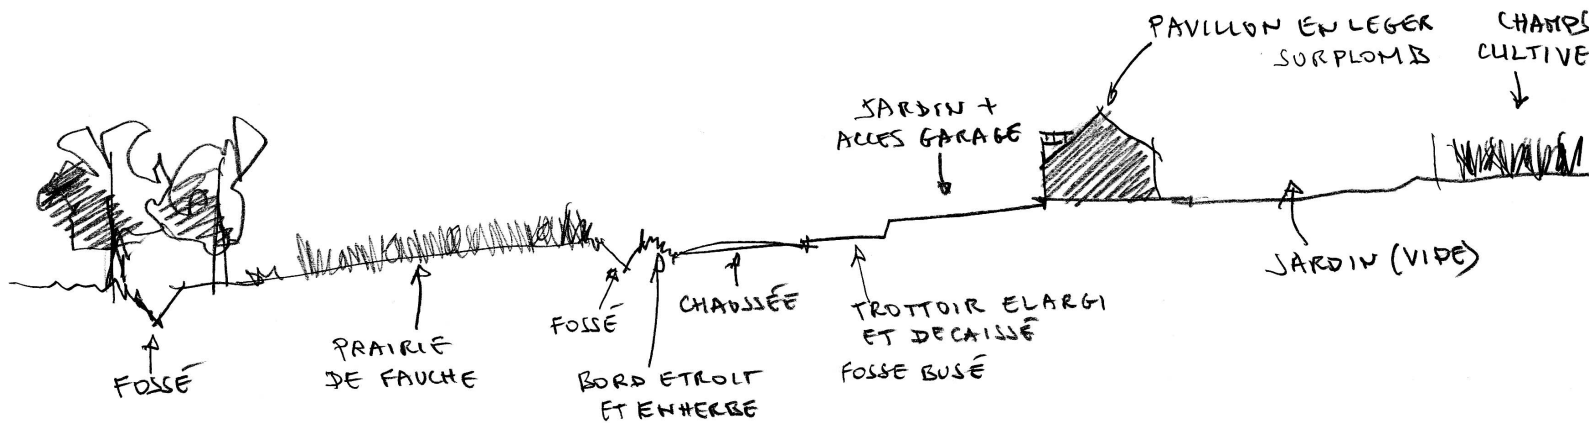 PAVILLON EN LEGER
SURPLOMB
CHAMPS
CULTIVE
JARDIN +
ACCES GARAGE
JARDIN (VIDE)
FOSSÉ
PRAIRIE
DE FAUCHE
FOSSÉ
BORD ETROIT
ET ENHERBE
CHAUSSÉE
TROTTOIR ELARGI
ET DECAISSÉ
FOSSE BUSÉ